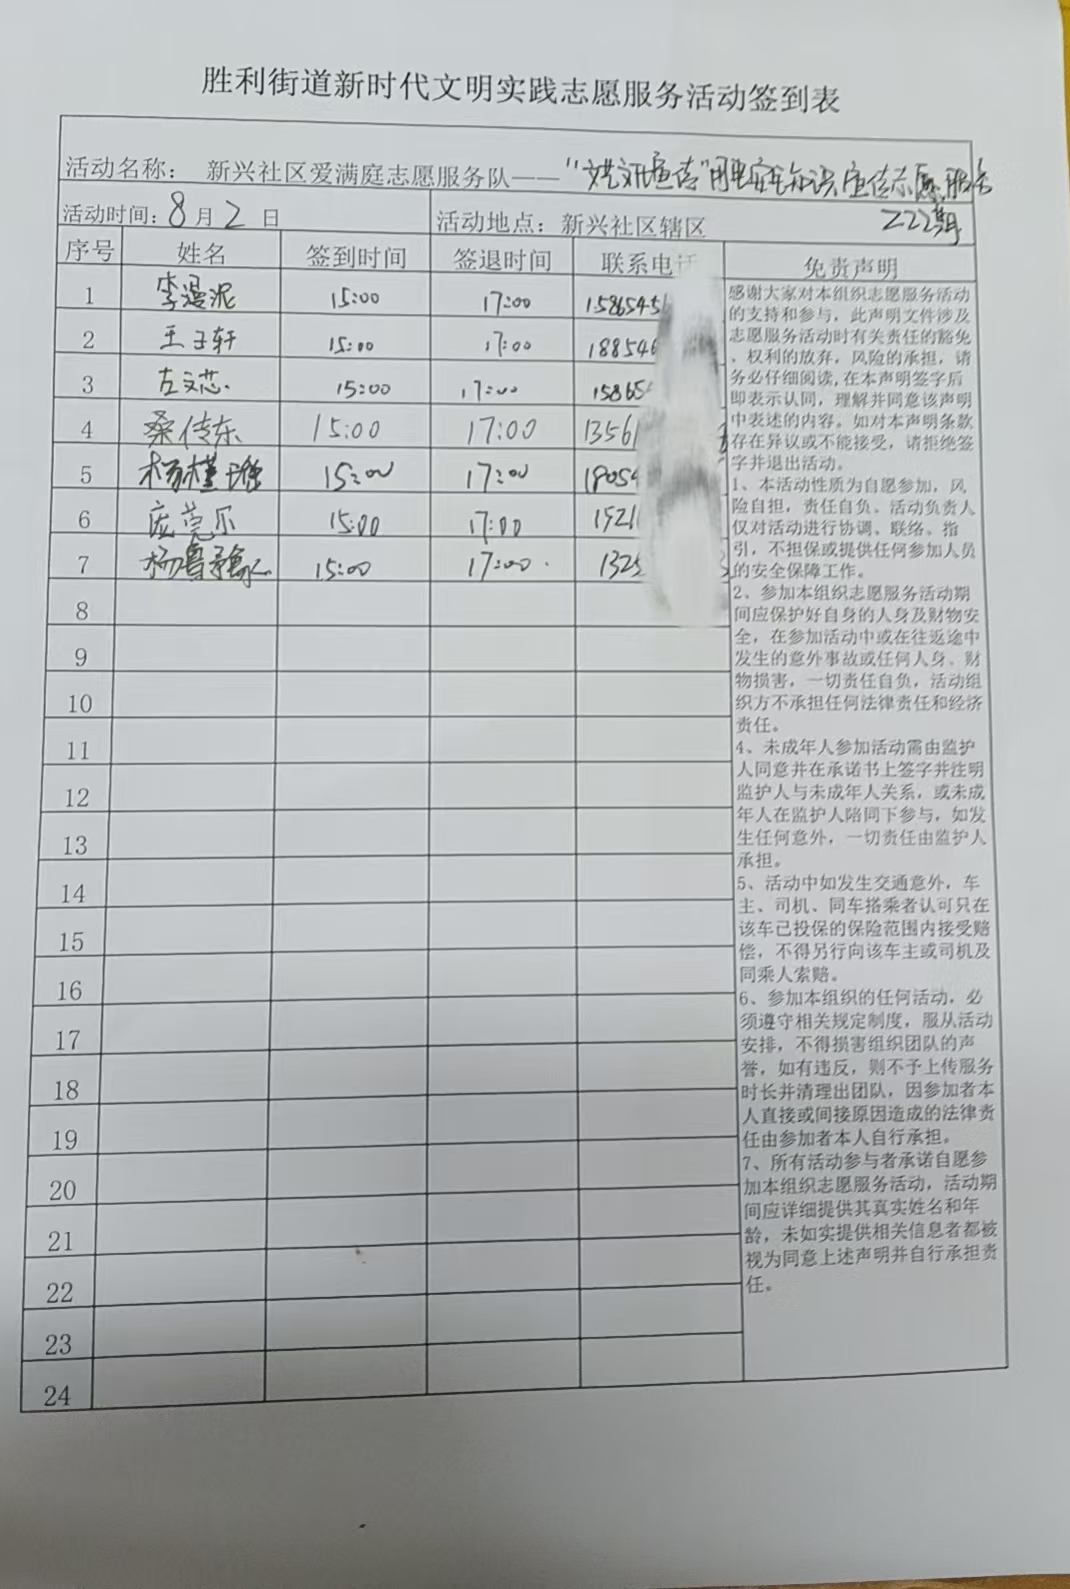 胜利街道新时代文明实践志愿服务活动签到表
活动名称： 新兴社区爱满庭志愿服务队——“文艺文讯宣传”用电安全知识宣传志愿服务
222期
活动时间：8月2日 活动地点：新兴社区辖区
序号 姓名 签到时间 签退时间 联系电话 免责声明
1 李漫泥 15:00 17:00 1586545
2 王子轩 15:00 17:00 18854
3 古文芯 15:00 17:00 15865
4 桑传东 15:00 17:00 1356
5 杨槿 15:00 17:00 18054
6 庞莞尔 15:00 17:00 1921
7 杨鲁豫 15:00 17:00 132
8
9
10
11
12
13
14
15
16
17
18
19
20
21
22
23
24
感谢大家对本组织志愿服务活动
的支持和参与，此声明文件涉及
志愿服务活动时有关责任的豁免
、权利的放弃，风险的承担，请
务必仔细阅读,在本声明签字后
即表示认同，理解并同意该声明
中表述的内容。如对本声明条款
存在异议或不能接受，请拒绝签
字并退出活动。
1、本活动性质为自愿参加，风
险自担，责任自负。活动负责人
仅对活动进行协调、联络、指
引，不担保或提供任何参加人员
的安全保障工作。
2、参加本组织志愿服务活动期
间应保护好自身的人身及财物安
全，在参加活动中或在往返途中
发生的意外事故或任何人身、财
物损害，一切责任自负，活动组
织方不承担任何法律责任和经济
责任。
4、未成年人参加活动需由监护
人同意并在承诺书上签字并注明
监护人与未成年人关系，或未成
年人在监护人陪同下参与，如发
生任何意外，一切责任由监护人
承担。
5、活动中如发生交通意外，车
主、司机、同车搭乘者认可只在
该车已投保的保险范围内接受赔
偿，不得另行向该车主或司机及
同乘人索赔。
6、参加本组织的任何活动，必
须遵守相关规定制度，服从活动
安排，不得损害组织团队的声
誉，如有违反，则不予上传服务
时长并清理出团队，因参加者本
人直接或间接原因造成的法律责
任由参加者本人自行承担。
7、所有活动参与者承诺自愿参
加本组织志愿服务活动，活动期
间应详细提供其真实姓名和年
龄，未如实提供相关信息者都被
视为同意上述声明并自行承担责
任。